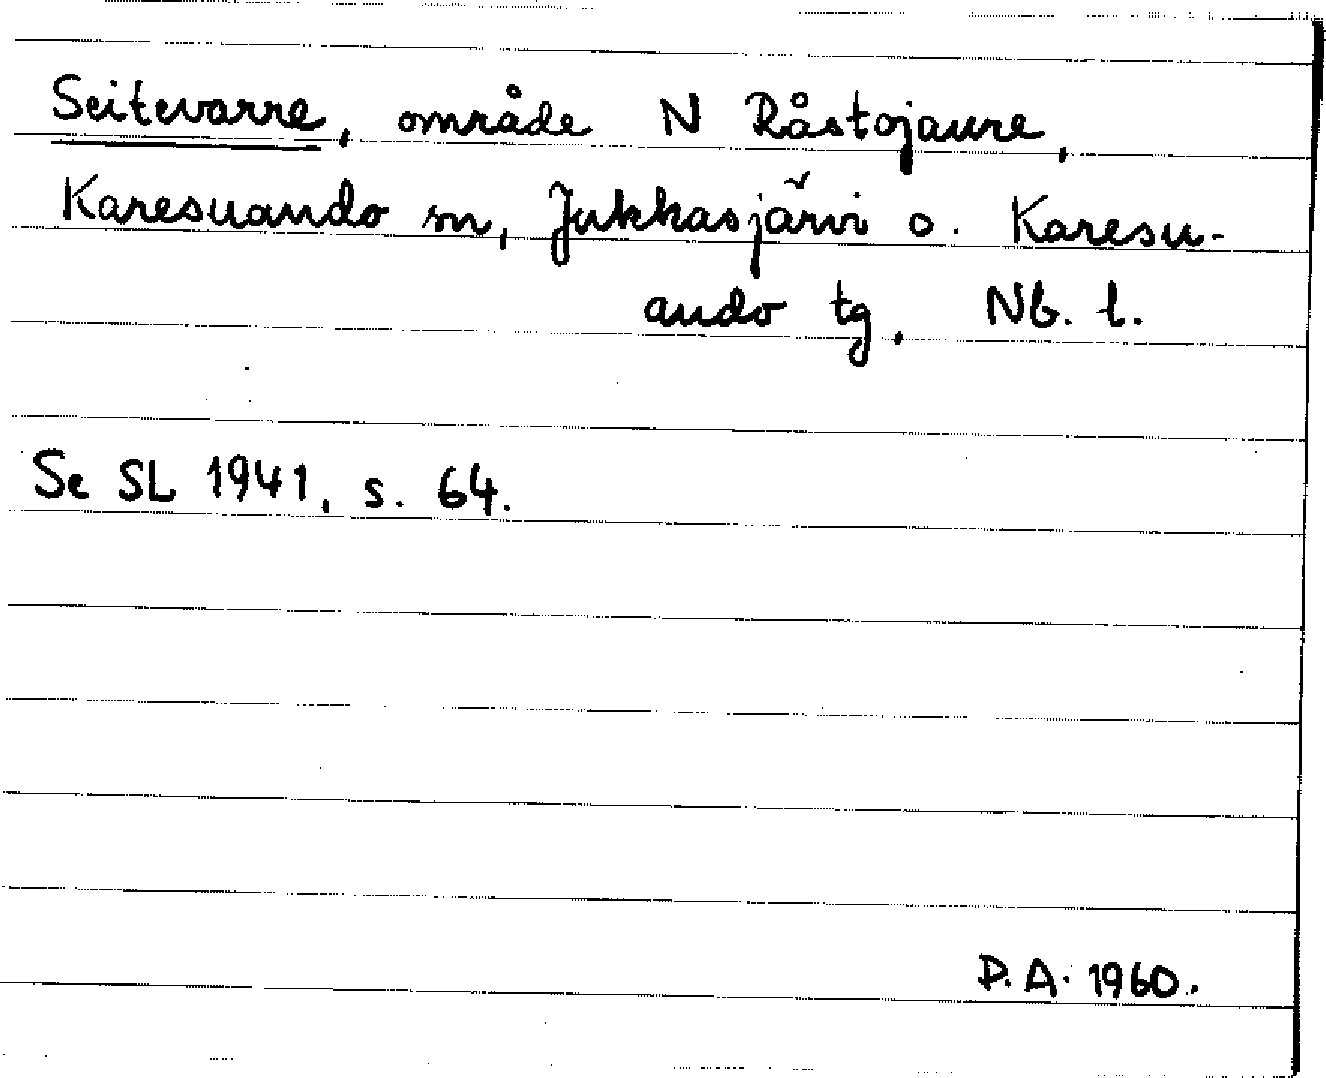 Seitevarre, område N Råstojaure,
Karesuando sn, Jukkasjärvi o. Karesu-
ando tg, Nb. l.
Se SL 1941, s. 64.
D.A. 1960.